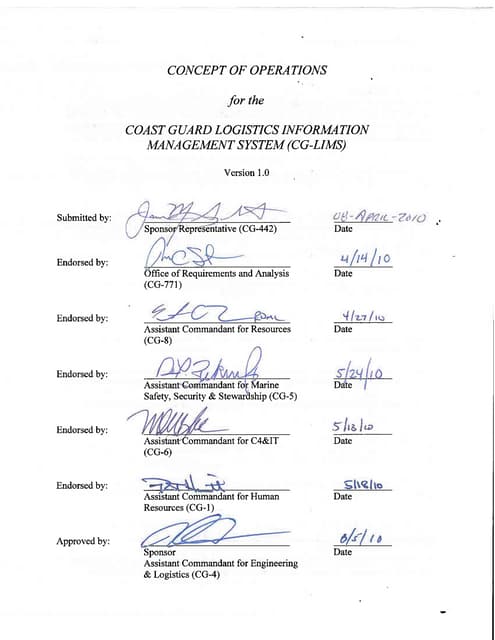 CONCEPT OF OPERATIONS
for the
COAST GUARD LOGISTICS INFORMATION
MANAGEMENT SYSTEM (CG-LIMS)
Version 1.0
Submitted by: 08-APRIL-2010
Sponsor Representative (CG-442) Date
Endorsed by: 4/14/10
Office of Requirements and Analysis Date
(CG-771)
Endorsed by: RDML 4/27/10
Assistant Commandant for Resources Date
(CG-8)
Endorsed by: 5/24/10
Assistant Commandant for Marine Date
Safety, Security & Stewardship (CG-5)
Endorsed by: 5/13/10
Assistant Commandant for C4&IT Date
(CG-6)
Endorsed by: 5/18/10
Assistant Commandant for Human Date
Resources (CG-1)
Approved by: 6/5/10
Sponsor Date
Assistant Commandant for Engineering
& Logistics (CG-4)